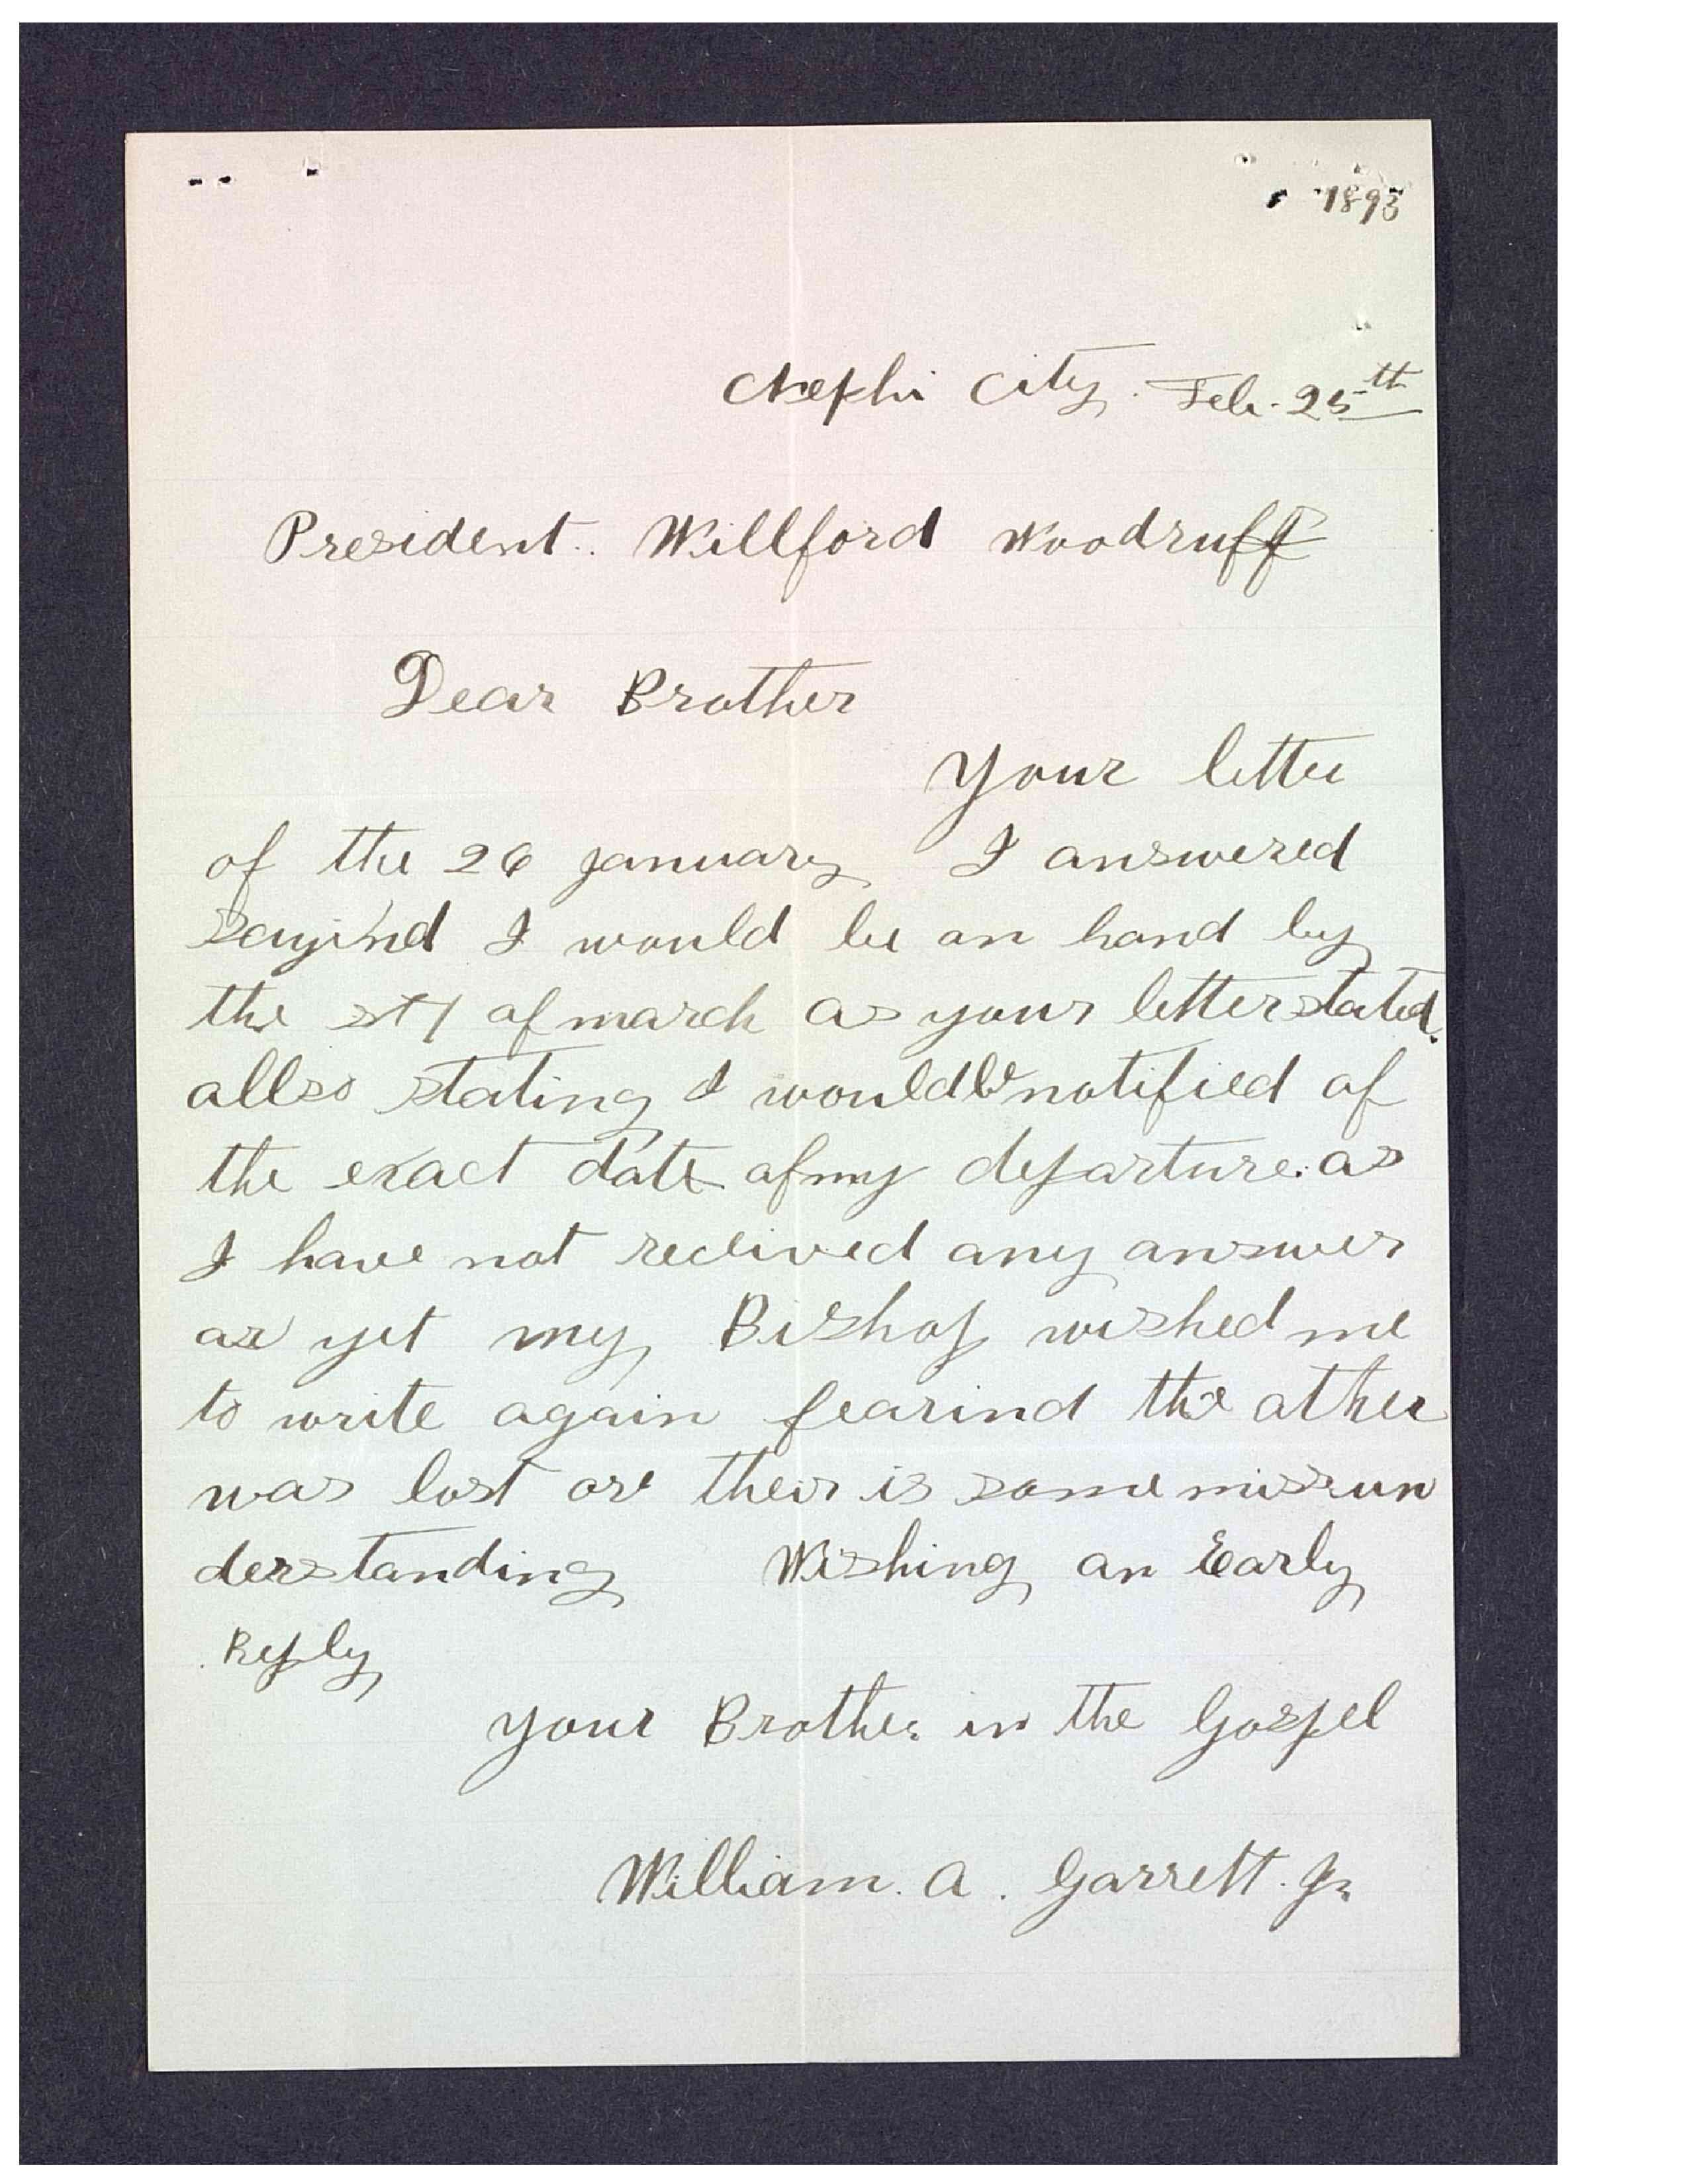 1893
Nephi City. Feb. 25th
President.. Willford Woodruff
Dear Brother
Your letter
of the 26 january I answered
sayind I would be on hand by
the st1 of march as your letter stated.
allso stating I would be notified of
the exact date of my departure. as
I have not recived any answer
as yet my Bishop wished me
to write again fearind the other
was lost or their is some missun
derstanding Wishing an Early
Reply
your Brother in the Gospel
William. A. Garrett. Jr